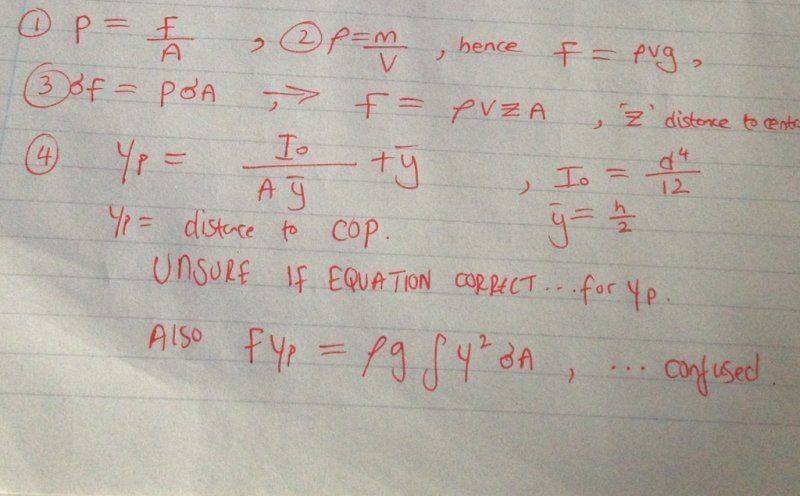 ① P = F/A , ② ρ = m/V , hence F = ρVg ,
③ ∂F = P∂A , ⇒ F = ρVZA , 'Z' distance to centr
④ yp = I₀/(A ȳ) + ȳ , I₀ = d⁴/12
ȳ = h/2
yp = distance to COP.
UNSURE IF EQUATION CORRECT... for yp.
Also Fyp = ρg ∫ y² ∂A , ... confused.